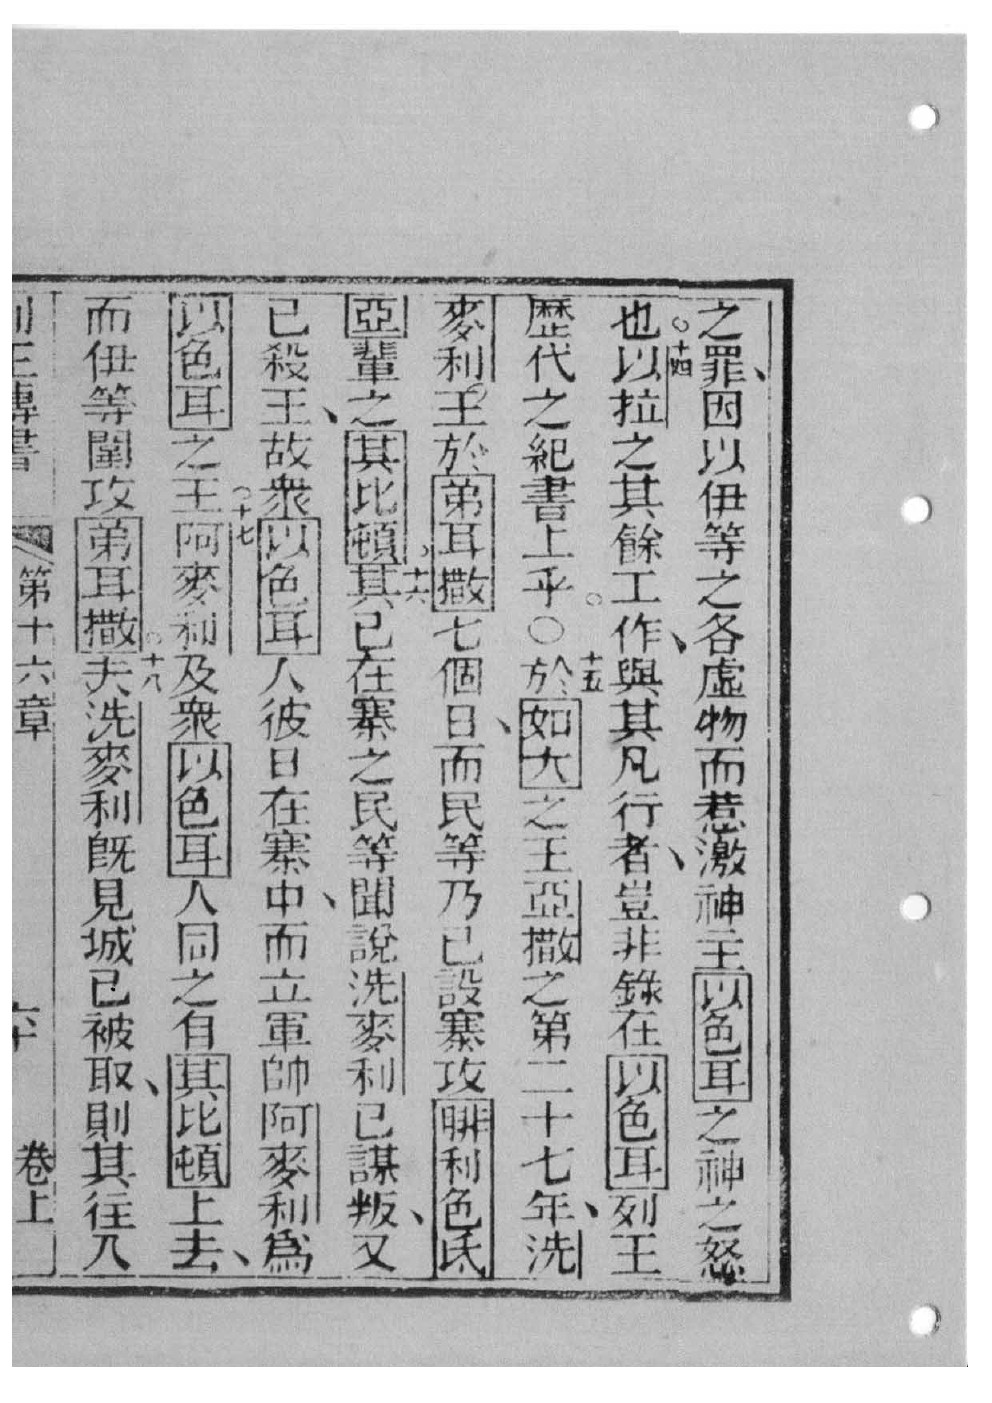 之罪、因以伊等之各虛物而惹激神主以色耳之神之怒
也○十四以拉之其餘工作、與其凡行者、豈非錄在以色耳列王
歷代之紀書上乎○○十五於如大之王亞撒之第二十七年、洗
麥利○王於弟耳撒七個日、而民等乃已設寨攻啡利色氐
亞輩之其比頓○十六其已在寨之民等聞說洗麥利已謀叛、又
已殺王、故衆以色耳人彼日在寨中、而立軍帥阿麥利爲
以色耳之王○十七阿麥利及衆以色耳人同之自其比頓上去、
而伊等圍攻弟耳撒○十八夫洗麥利旣見城已被取、則其往入
列王傳書 第十六章 六十 卷上